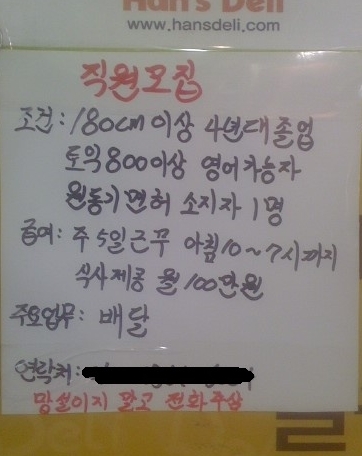 Han's Deli
www.hansdeli.com
직원모집
조건: 180cm이상 4년대졸업
토익800이상 영어가능자
원동기면허 소지자 1명
급여: 주5일근무 아침10~7시까지
식사제공 월100만원
주요업무: 배달
연락처:
망설이지 말고 전화주삼